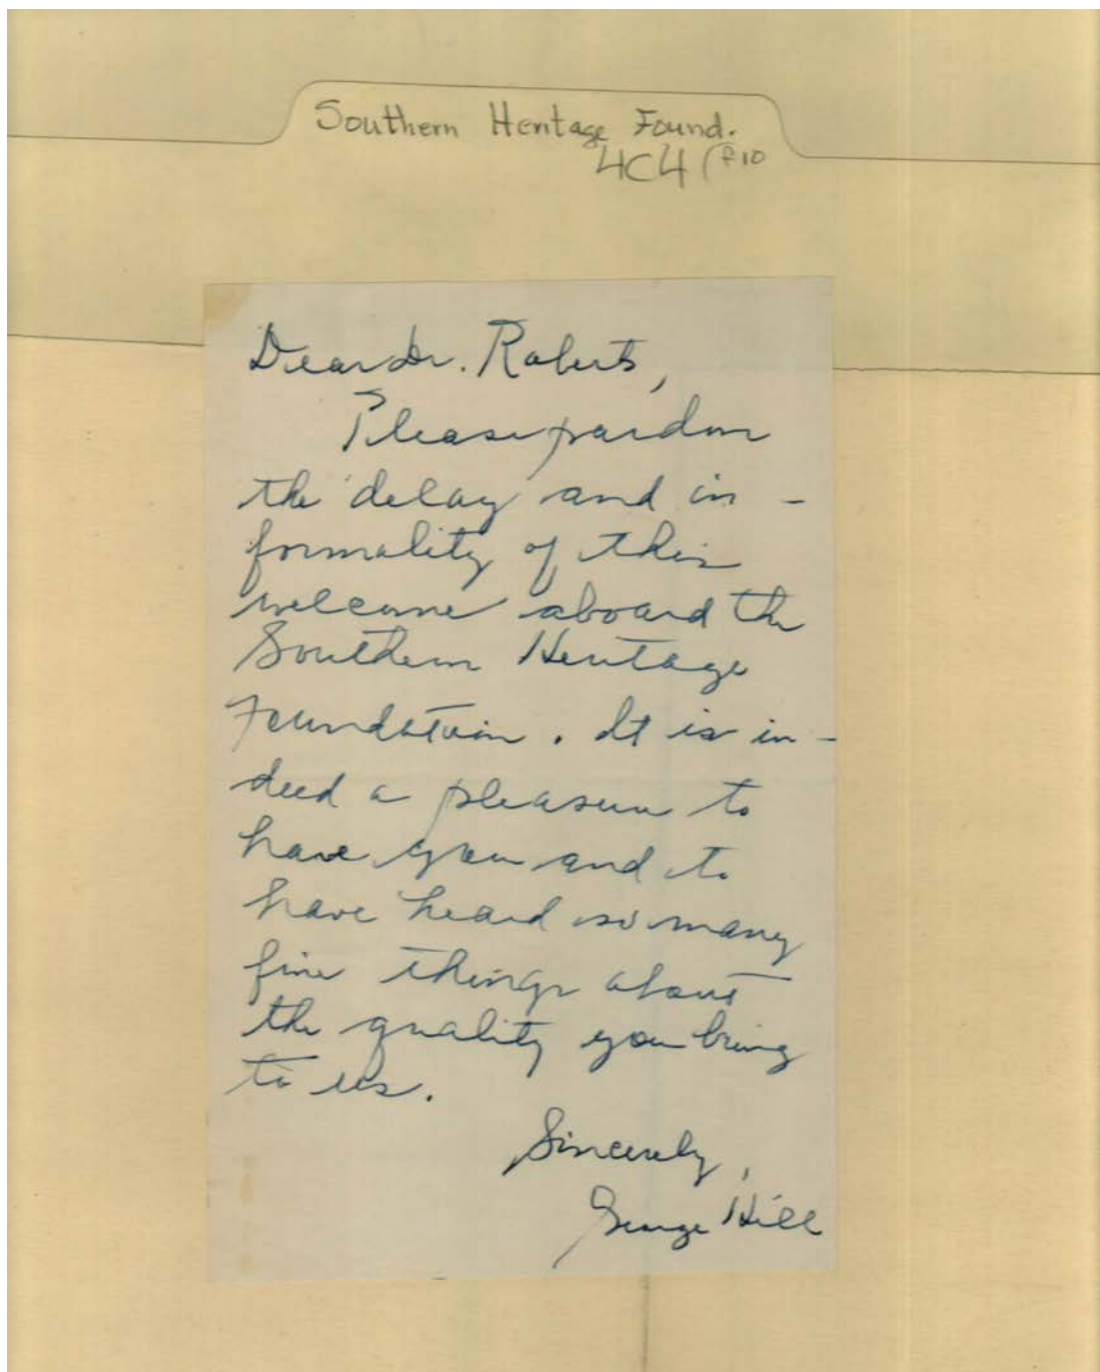 Southern Heritage Found.
4C4 (F10
Dear Dr. Roberts,
Please pardon
the delay and in -
formality of this
welcome aboard the
Southern Heritage
Foundation. It is in -
deed a pleasure to
have you and to
have heard so many
fine things about
the quality you bring
to us.
Sincerely,
George Hill